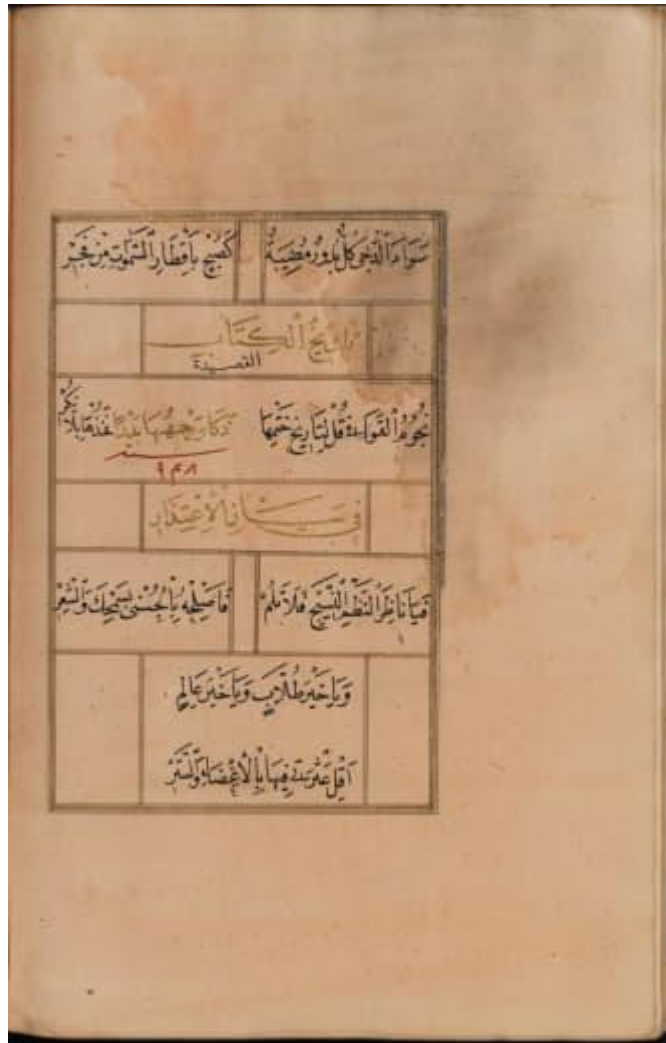 سَوَاءَ الدُّجَى كُلٌّ بُدُورٌ مُضِيَّةٌ كَصُبْحٍ بِأَقْطَارِ السَّمٰوَتِ مِنْ فَجْرِ
تَارِيخُ الْكِتَابِ
القصيدة
نُجُومُ الْقَوَاعِدْ قُلْ لِتَارِيخِ خَتْمِهَا ذَكَا وَجْهُهَا فَخُذْهَا بِلَا نُكْرِ
فِي بَيَانِ الْاِعْتِذَارِ
فَيَا نَاظِرَ النَّظْمِ النَّسِيجِ فَلَا تَلُمْ فَاصْلِحْهُ بِالْحُسْنَى بِسَمْحِكَ وَالسَّتْرِ
وَيَا خَيْرَ طُلَّابٍ وَيَا خَيْرَ عَالِمٍ
اَقِلْ عَثْرَتِي فِيهَا بِالْاِغْضَاءِ وَالسَّتْرِ